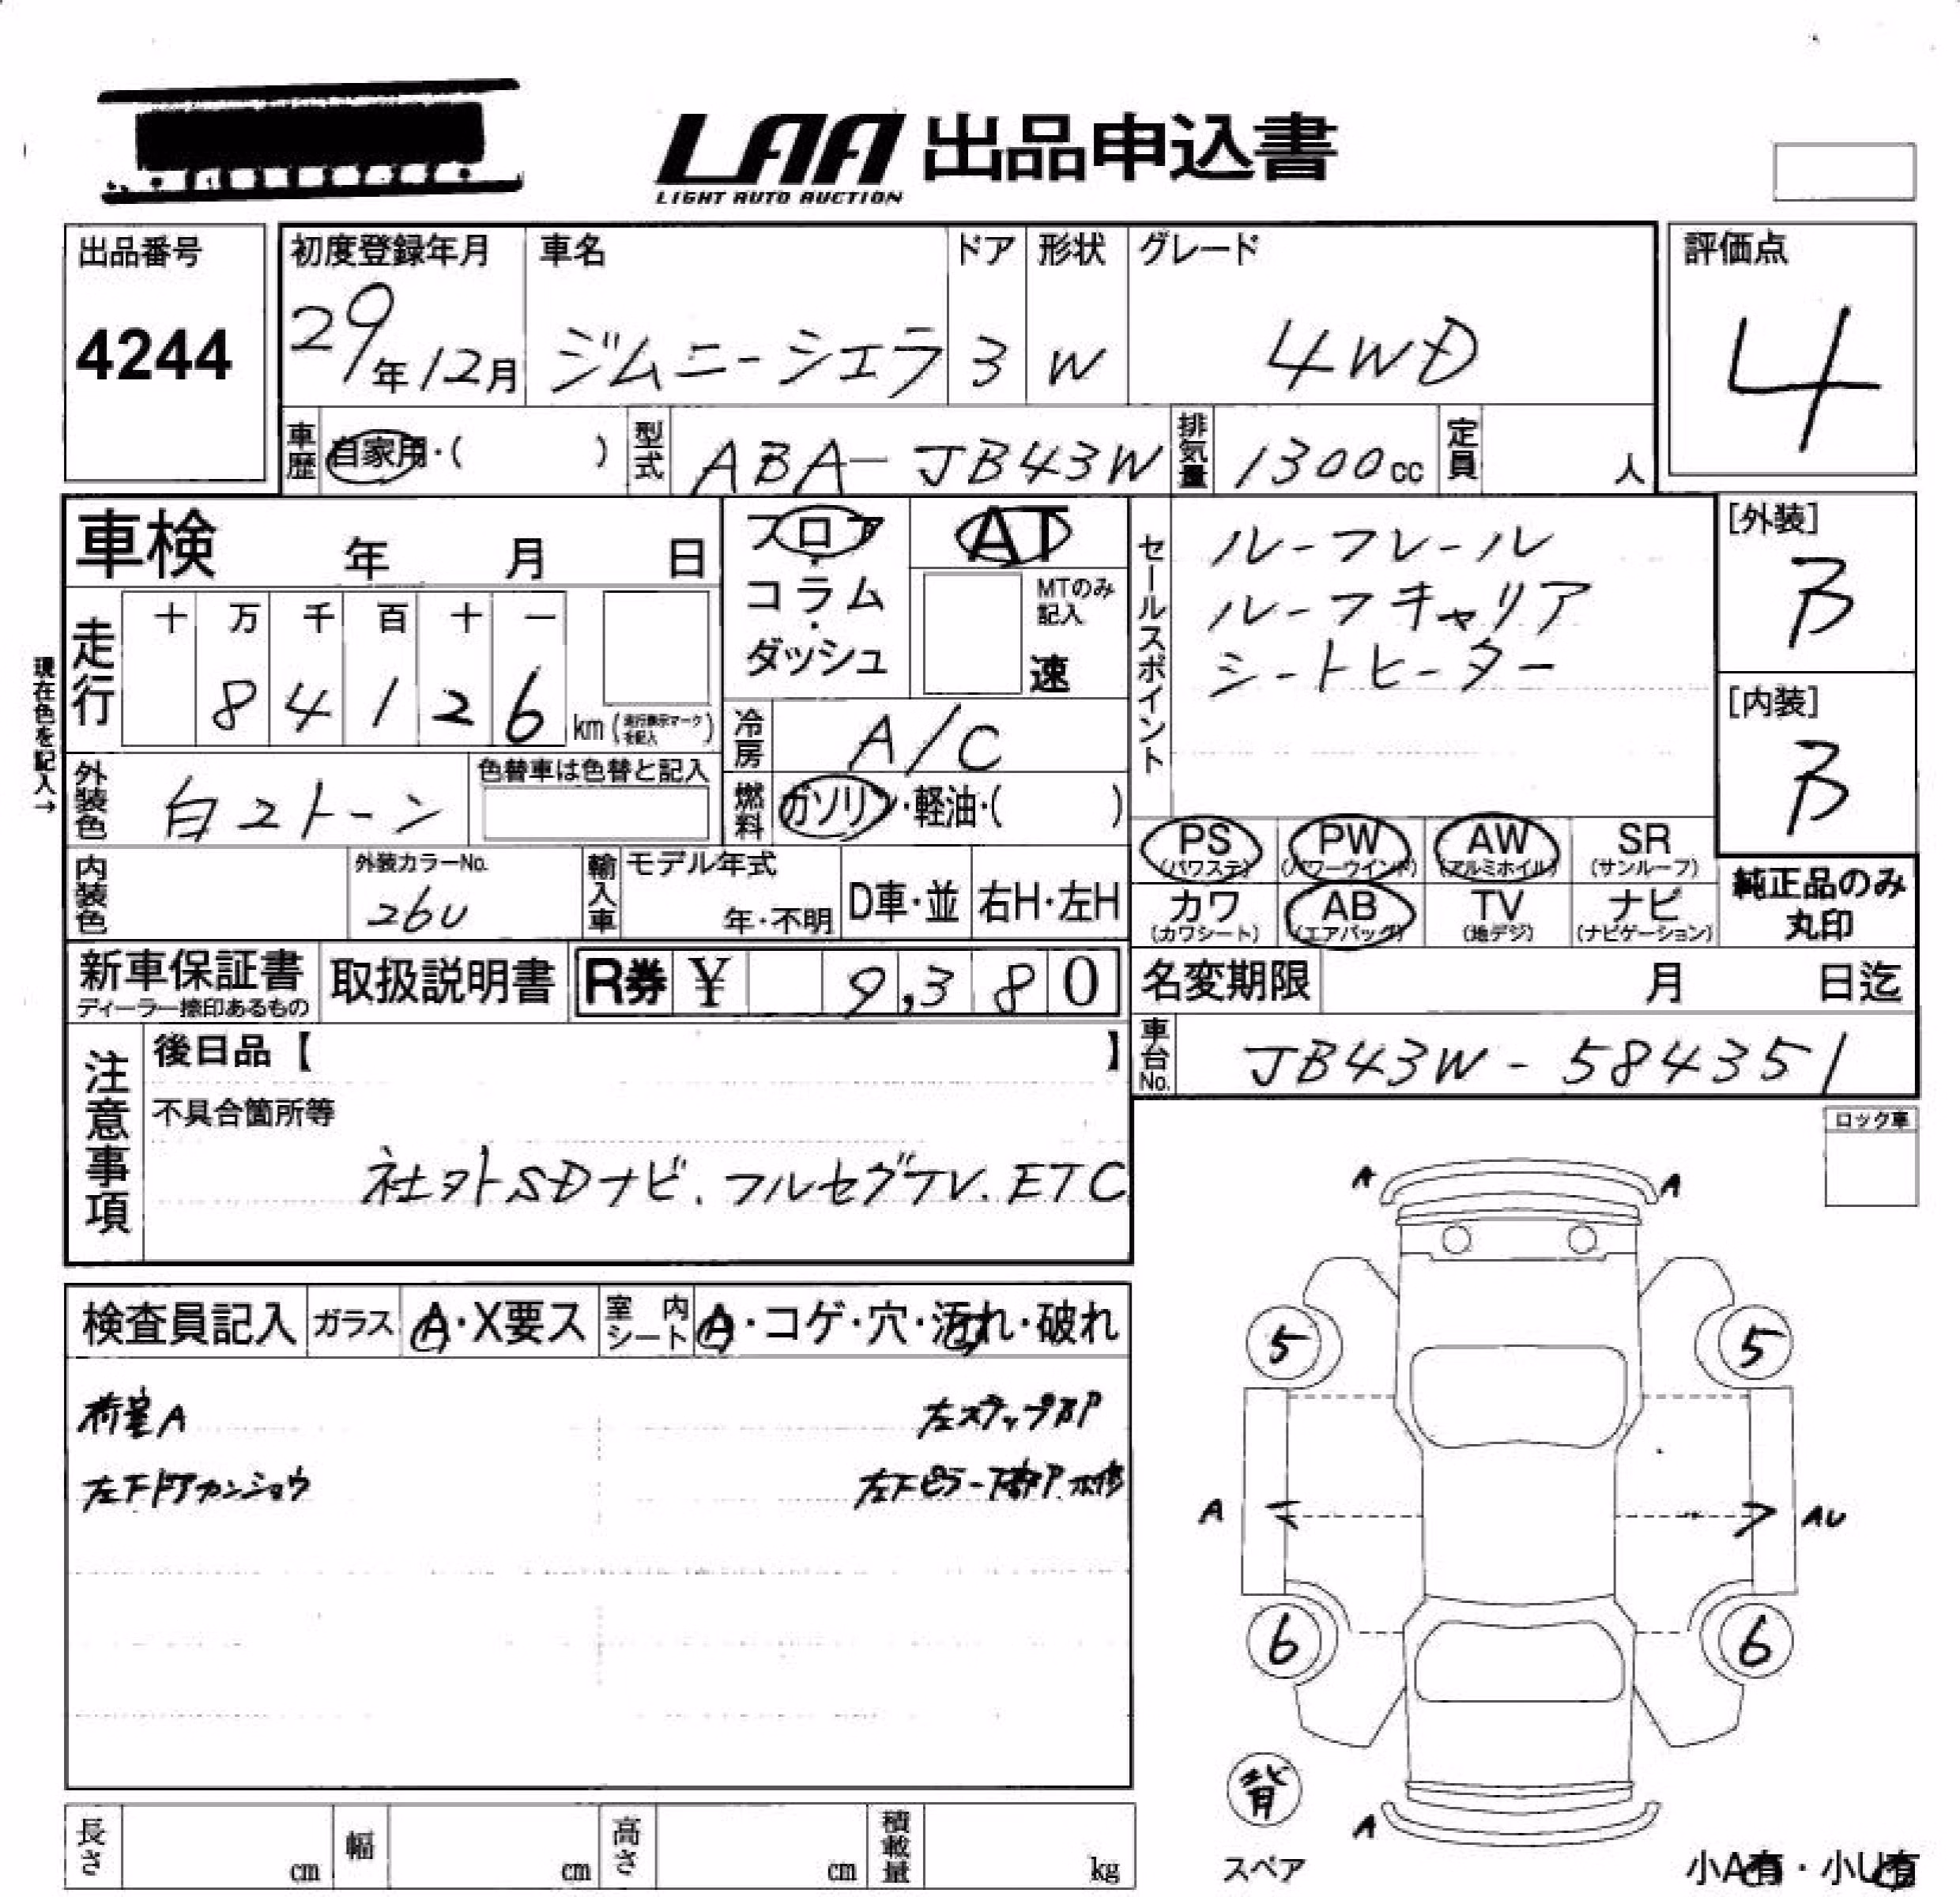 LAA 出品申込書
LIGHT AUTO AUCTION
出品番号
4244
初度登録年月
29年12月
車名
ジムニーシエラ
ドア
3
形状
W
グレード
4WD
評価点
4
車歴 自家用・( )
型式 ABA-JB43W
排気量 1300cc
定員 人
車検 年 月 日
フロア・コラム・ダッシュ
AT
MTのみ記入
速
セールスポイント
ルーフレール
ルーフキャリア
シートヒーター
[外装]
B
[内装]
B
現在色を記入→
走行
十 万 千 百 十 一
8 4 1 2 6 km (走行表示マークを記入)
冷房 A/C
外装色 白2トーン
色替車は色替と記入
燃料 ガソリン・軽油・( )
PS (パワステ) PW (パワーウインド) AW (アルミホイル) SR (サンルーフ)
カワ (カワシート) AB (エアバッグ) TV (地デジ) ナビ (ナビゲーション)
純正品のみ丸印
内装色
外装カラーNo.
26U
輸入車 モデル年式 年・不明 D車・並 右H・左H
新車保証書 ディーラー捺印あるもの
取扱説明書
R券 ¥ 9,380
名変期限 月 日迄
車台No. JB43W-584351
注意事項
後日品【 】
不具合箇所等
社外SDナビ.フルセグTV.ETC
ロック車
検査員記入 ガラス A・X要ス 室内シート A・コゲ・穴・汚れ・破れ
荷室A 左ステップ部P
左Fドアカンショウ 左Fピラー下部P
A A
5 5
A AU
6 6
背
スペア
A
小A有・小U有
長さ cm 幅 cm 高さ cm 積載量 kg